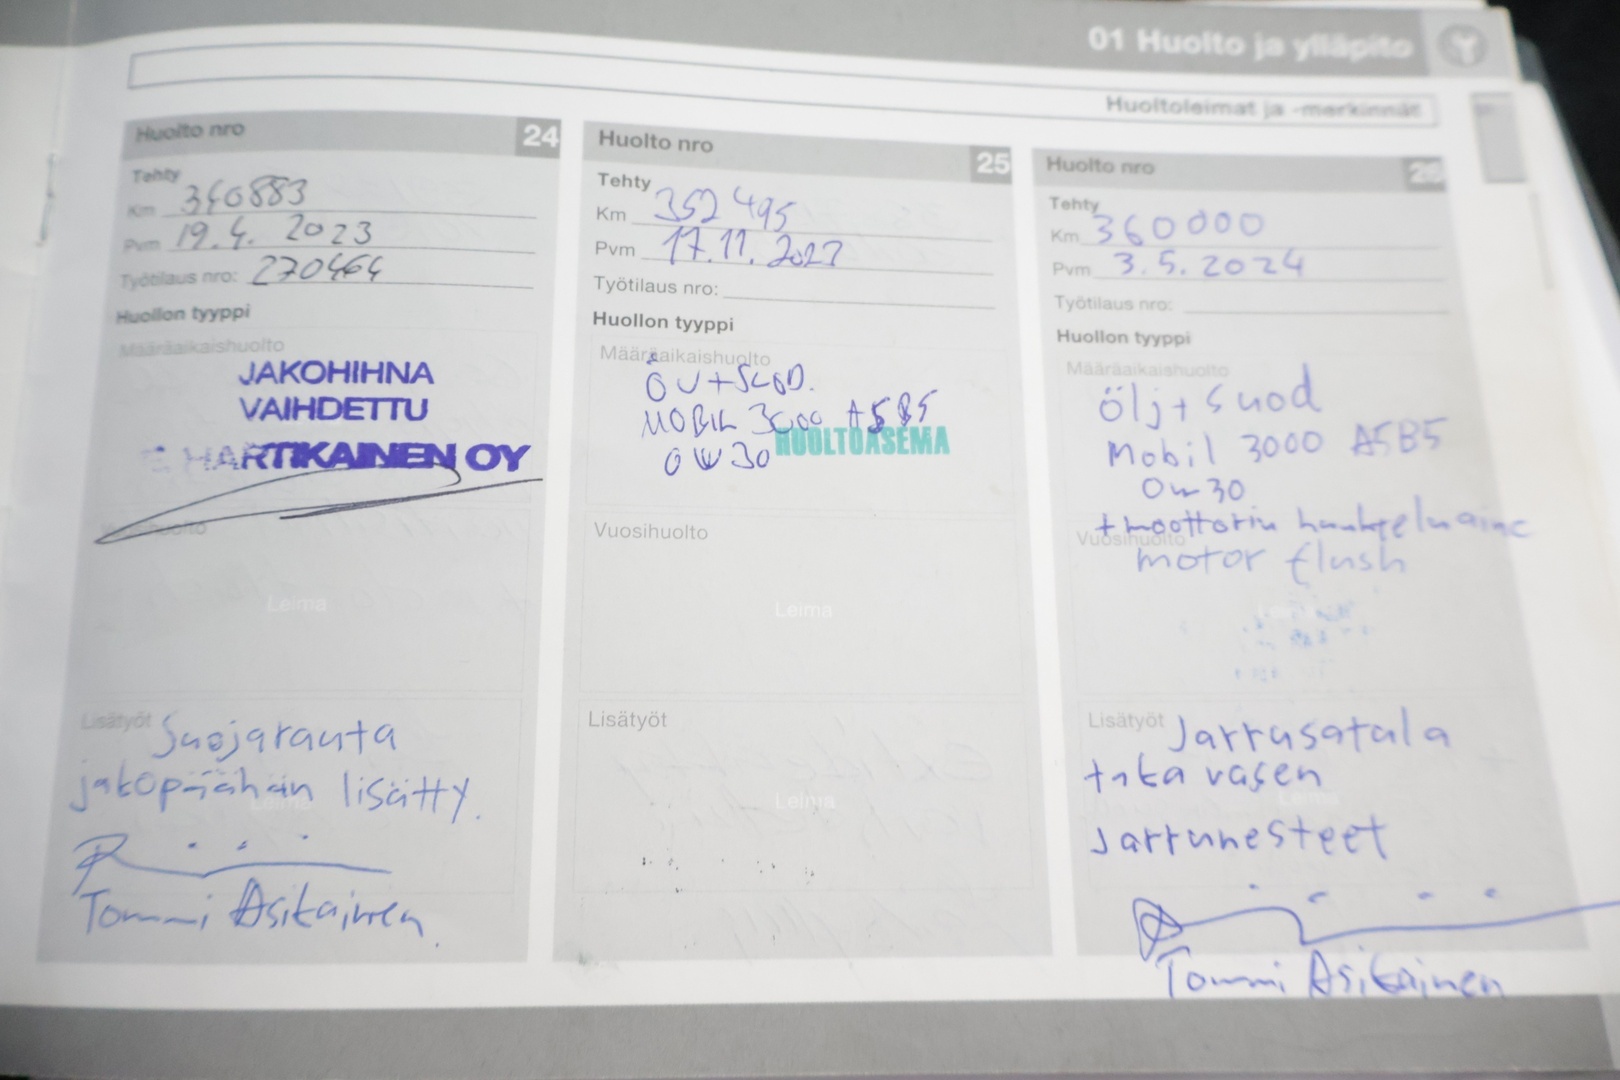 01 Huolto ja ylläpito
Huoltoleimat ja -merkinnät
Huolto nro 24
Tehty
Km 340883
Pvm 19.4. 2023
Työtilaus nro: 270464
Huollon tyyppi
Määräaikaishuolto
JAKOHIHNA
VAIHDETTU
HARTIKAINEN OY
Vuosihuolto
Leima
Lisätyöt Suojarauta
jakopäähän lisätty.
Leima
Tommi Asikainen
Huolto nro 25
Tehty
Km 352 495
Pvm 17.11.2023
Työtilaus nro:
Huollon tyyppi
Määräaikaishuolto
ÖV+SUOD.
MOBIL 3000 A5B5
0W30 HUOLTOASEMA
Vuosihuolto
Leima
Lisätyöt
Leima
Huolto nro 26
Tehty
Km 360000
Pvm 3.5.2024
Työtilaus nro:
Huollon tyyppi
Määräaikaishuolto
Ölj+ suod
Mobil 3000 A5B5
0w30
+moottorin huuhteluaine
Vuosihuolto
motor flush
Leima
Lisätyöt Jarrusatula
taka vasen
Leima
Jarrunesteet
Tommi Asikainen